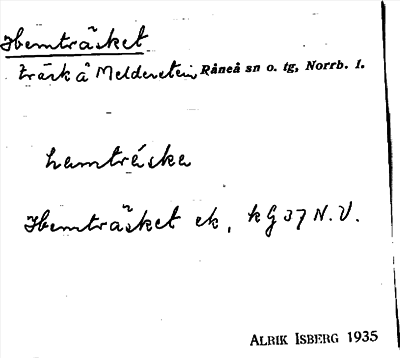 Hemträsket
träsk å Melderstein Råneå sn o. tg, Norrb. l.
hamträska
Hemträsket ek, kG 37 N.V.
ALRIK ISBERG 1935